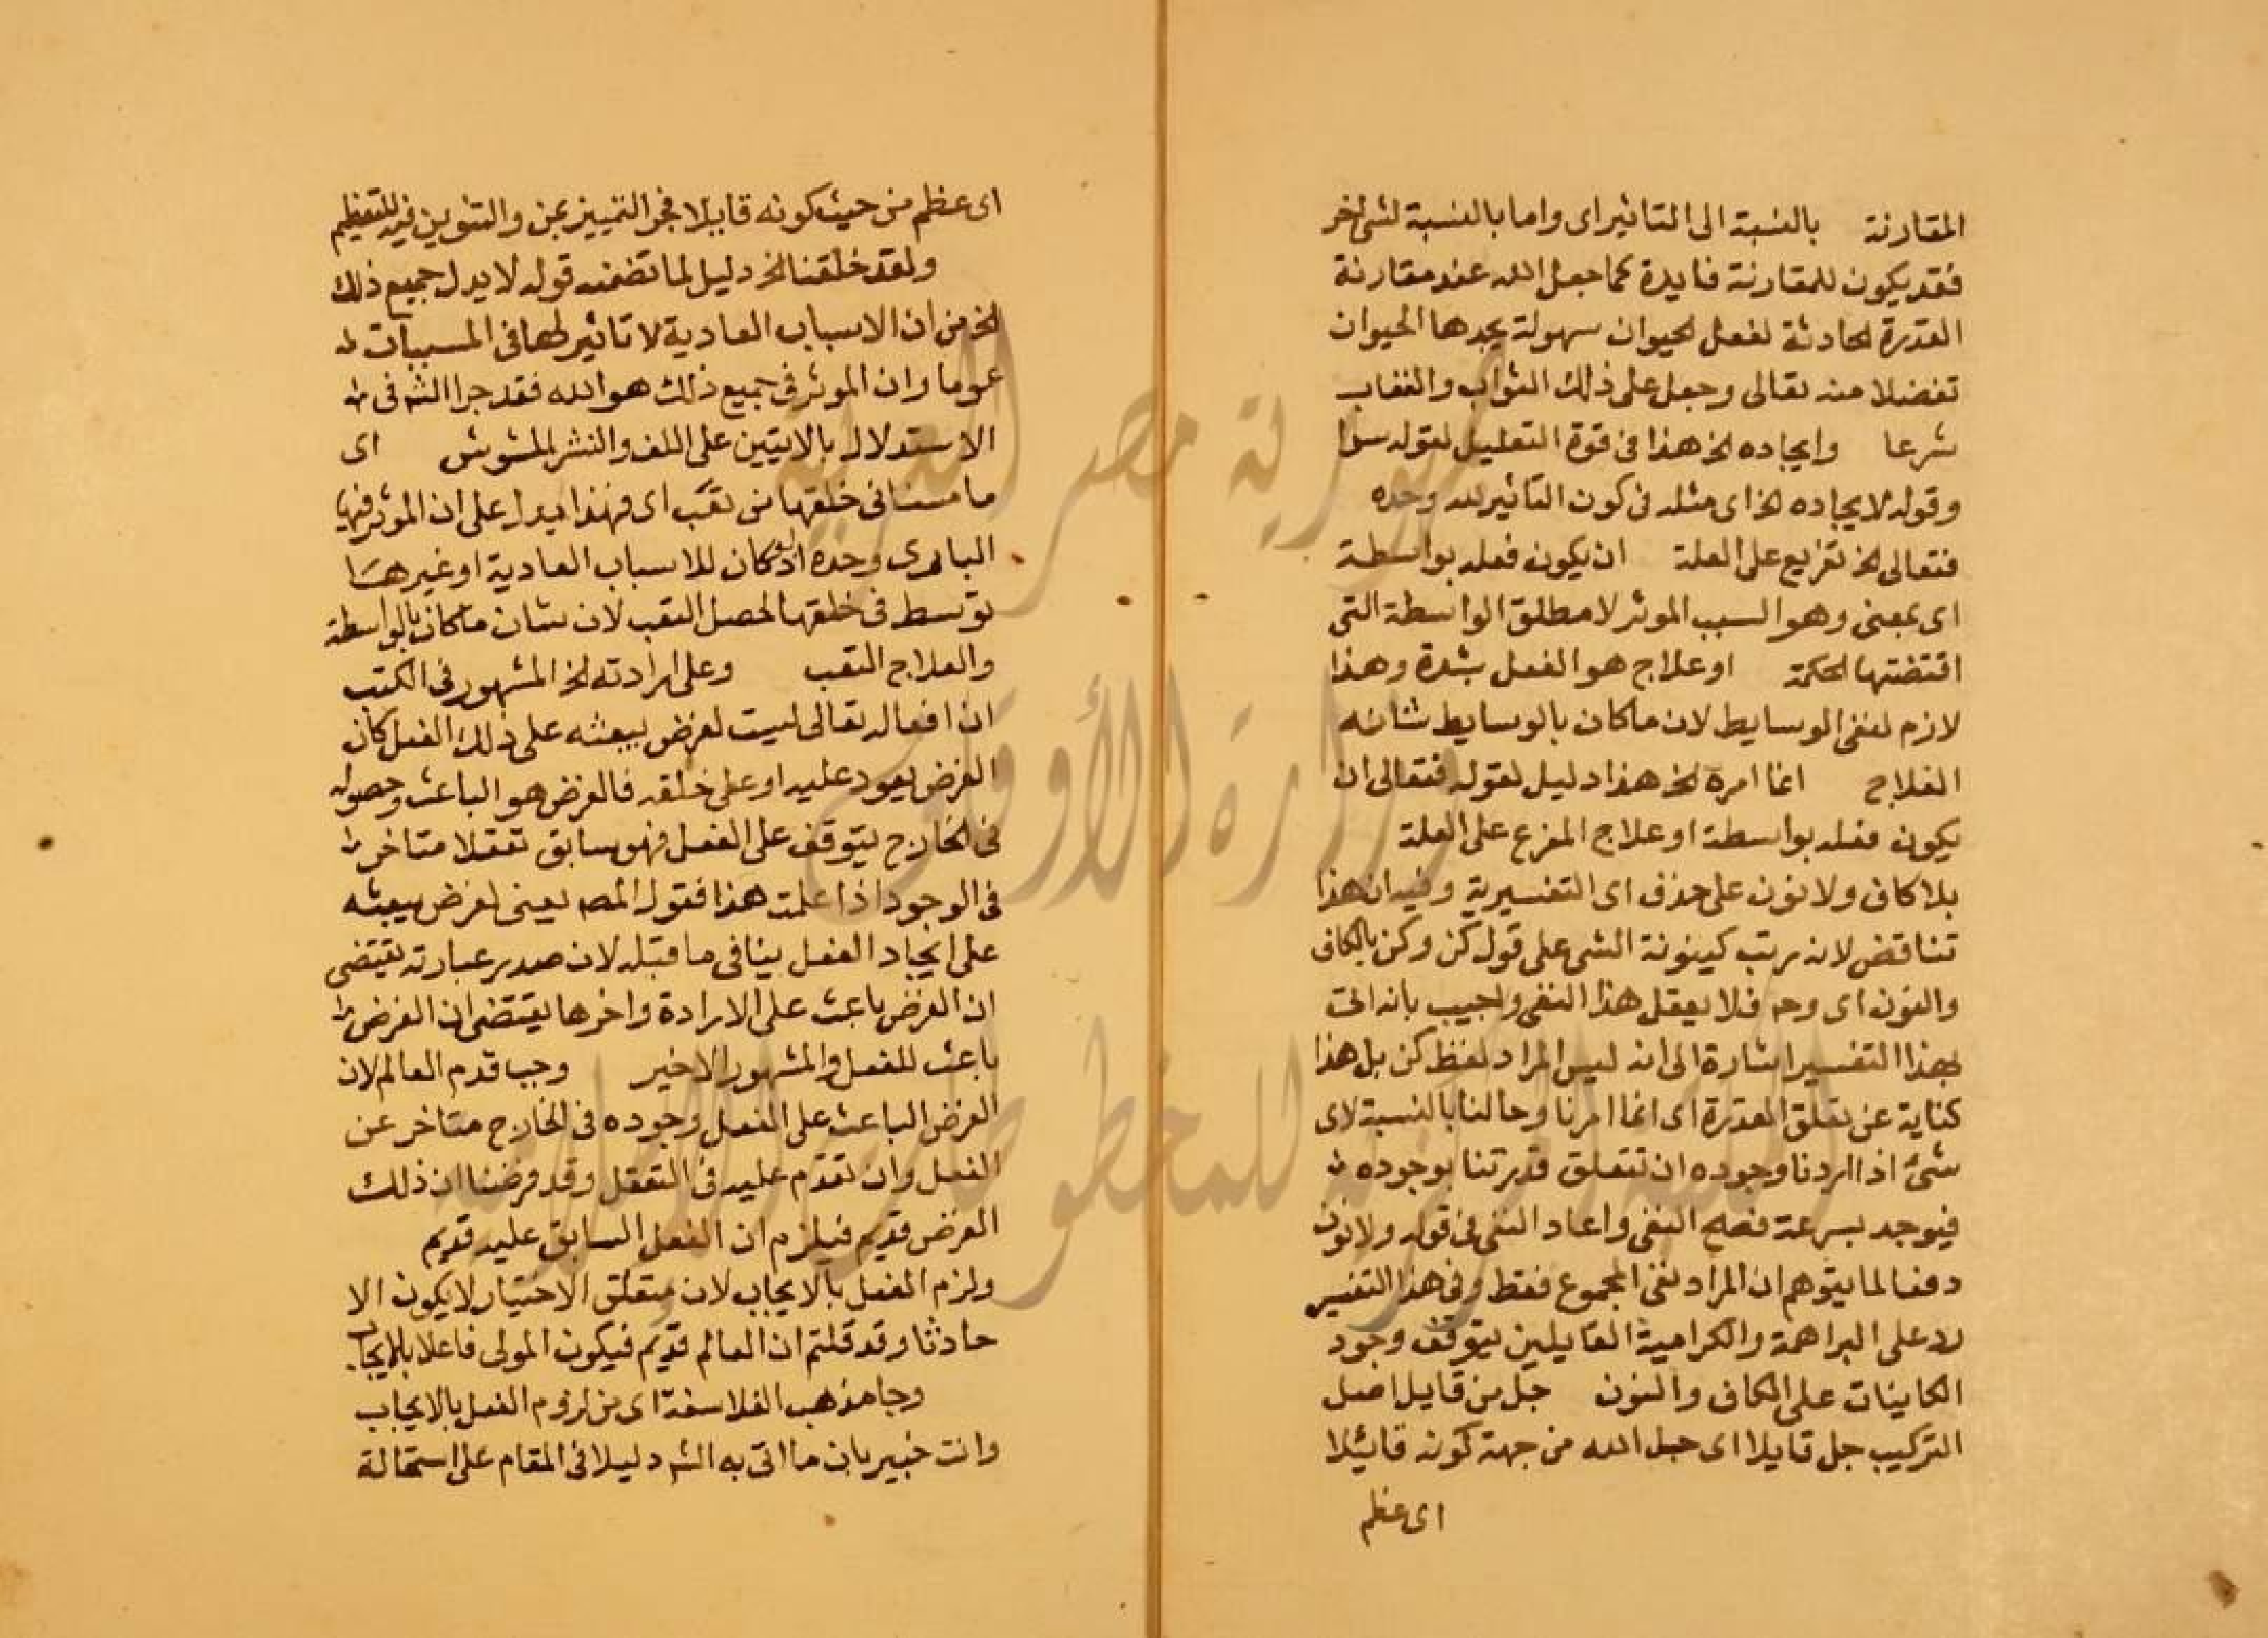 المقارنة بالنسبة الى التاثير اى واما بالنسبة لشى اخر
فقد يكون للمقارنة فايدة كما جعل الله عند مقارنة
القدرة الحادثة لفعل الحيوان سهولة يجدها الحيوان
تفضلا منه تعالى وجعل على ذلك الثواب والعقاب
شرعا وايجاده الخ هذا فى قوة التعليل لقوله سوا
وقوله لايجاده الخ اى مثله فى كون التاثير لله وحده
فتعالى الخ تفريع على العلة ان يكون فعله بواسطة
اى بمعنى وهو السبب الموثر لا مطلق الواسطة التى
اقتضتها الحكمة او علاج هو الفعل بشدة وهذا
لازم لنفى الوسايط لان ما كان بالوسايط شانه
العلاج انما امره الخ هذا دليل لقوله فتعالى ان
يكون فعله بواسطة او علاج المفرع على العلة
بلا كاف ولا نون على حذف اى التفسيرية وفيه ان هذا
تناقض لانه رتب كينونة الشى على قول كن وكن بالكاف
والنون اى وح فلا يعقل هذا النفى واجيب بانه اتى
بهذا التفسير اشارة الى انه ليس المراد لفظ كن بل هذا
كناية عن تعلق القدرة اى انما امرنا وحالنا بالنسبة لاى
شئ اذا اردنا وجوده ان تتعلق قدرتنا بوجوده
فيوجد بسرعة فصح النفى واعاد النفى فى قوله ولا نون
دفعا لما يتوهم ان المراد نفى المجموع فقط وفى هذا التفسير
رد على البراهمة والكرامية القايلين بتوقف وجود
الكاينات على الكاف والنون جل من قايل اصل
التركيب جل قايلا اى جل الله من جهة كونه قائلا
اى عظم
اى عظم من حيث كونه قايلا فجر التمييز بمن والتنوين فيه للتعظيم
ولقد خلقنا الخ دليل لما تضمنه قوله لا يدل جميع ذلك
الخ من ان الاسباب العادية لا تاثير لها فى المسببات
عوما وان الموثر فى جميع ذلك هو الله فقد جرا الش فى
الاستدلال بالايتين على اللف والنشر المشوش اى
ما مسنا فى خلقها من تعب اى فهذا يدل على ان الموثر فيها
البارى وحده اذ لو كان للاسباب العادية او غيرها
توسط فى خلقها لحصل التعب لان شان ما كان بالواسطة
والعلاج التعب وعلى ارادته الخ المشهور فى الكتب
ان افعاله تعالى ليست لغرض يبعثه على ذلك الفعل كان
الغرض يعود عليه او على خلقه فالغرض هو الباعث وحصوله
فى الخارج يتوقف على الفعل فهو سابق تعقلا متاخر
فى الوجود اذا علمت هذا فقول المص يعنى لغرض يبعثه
على ايجاد الفعل ينافى ما قبله لان صدر عبارته تقتضى
ان الغرض باعث على الارادة واخرها يقتضى ان الغرض
باعث للفعل والمشهور الاخير وجب قدم العالم لان
الغرض الباعث على الفعل وجوده فى الخارج متاخر عن
الفعل وان تقدم عليه فى التعقل وقد فرضنا ان ذلك
الغرض قديم فيلزم ان الفعل السابق عليه قديم
ولزم الفعل بالايجاب لان متعلق الاختيار لا يكون الا
حادثا وقد قلتم ان العالم قديم فيكون المولى فاعلا بالايجاب
وجا مذهب الفلاسفة اى من لزوم الفعل بالايجاب
وانت خبير بان ما اتى به الش دليلا فى المقام على استحالة